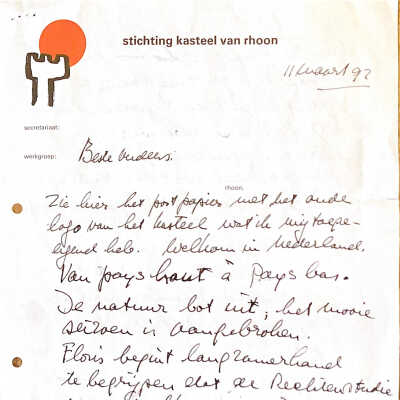 stichting kasteel van rhoon
11 maart 92
secretariaat:
werkgroep: Beste ouders:
rhoon,
Zie hier het postpapier met het oude
logo van het kasteel wat ik mij toege-
eigend heb. Welkom in Nederland.
Van pays haut à Pays bas.
De natuur bot uit, het mooie
seizoen is aangebroken.
Floris begint langzamerhand
te begrijpen dat de Rechtenstudie